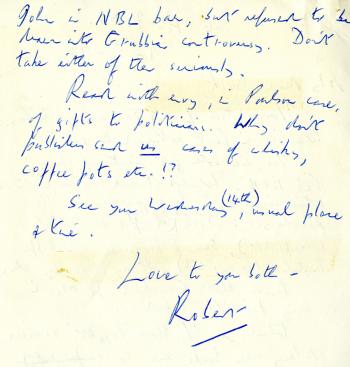 John in NBL bar, but refused to be
drawn into Grubbie controversy. Don't
take either of them seriously.
Read with envy, in Poulson case,
of gifts to politicians. Why don't
publishers send us cases of whisky,
coffee pots etc. !?
See you Wednesday (14th), usual place
& time.
Love to you both –
Robert